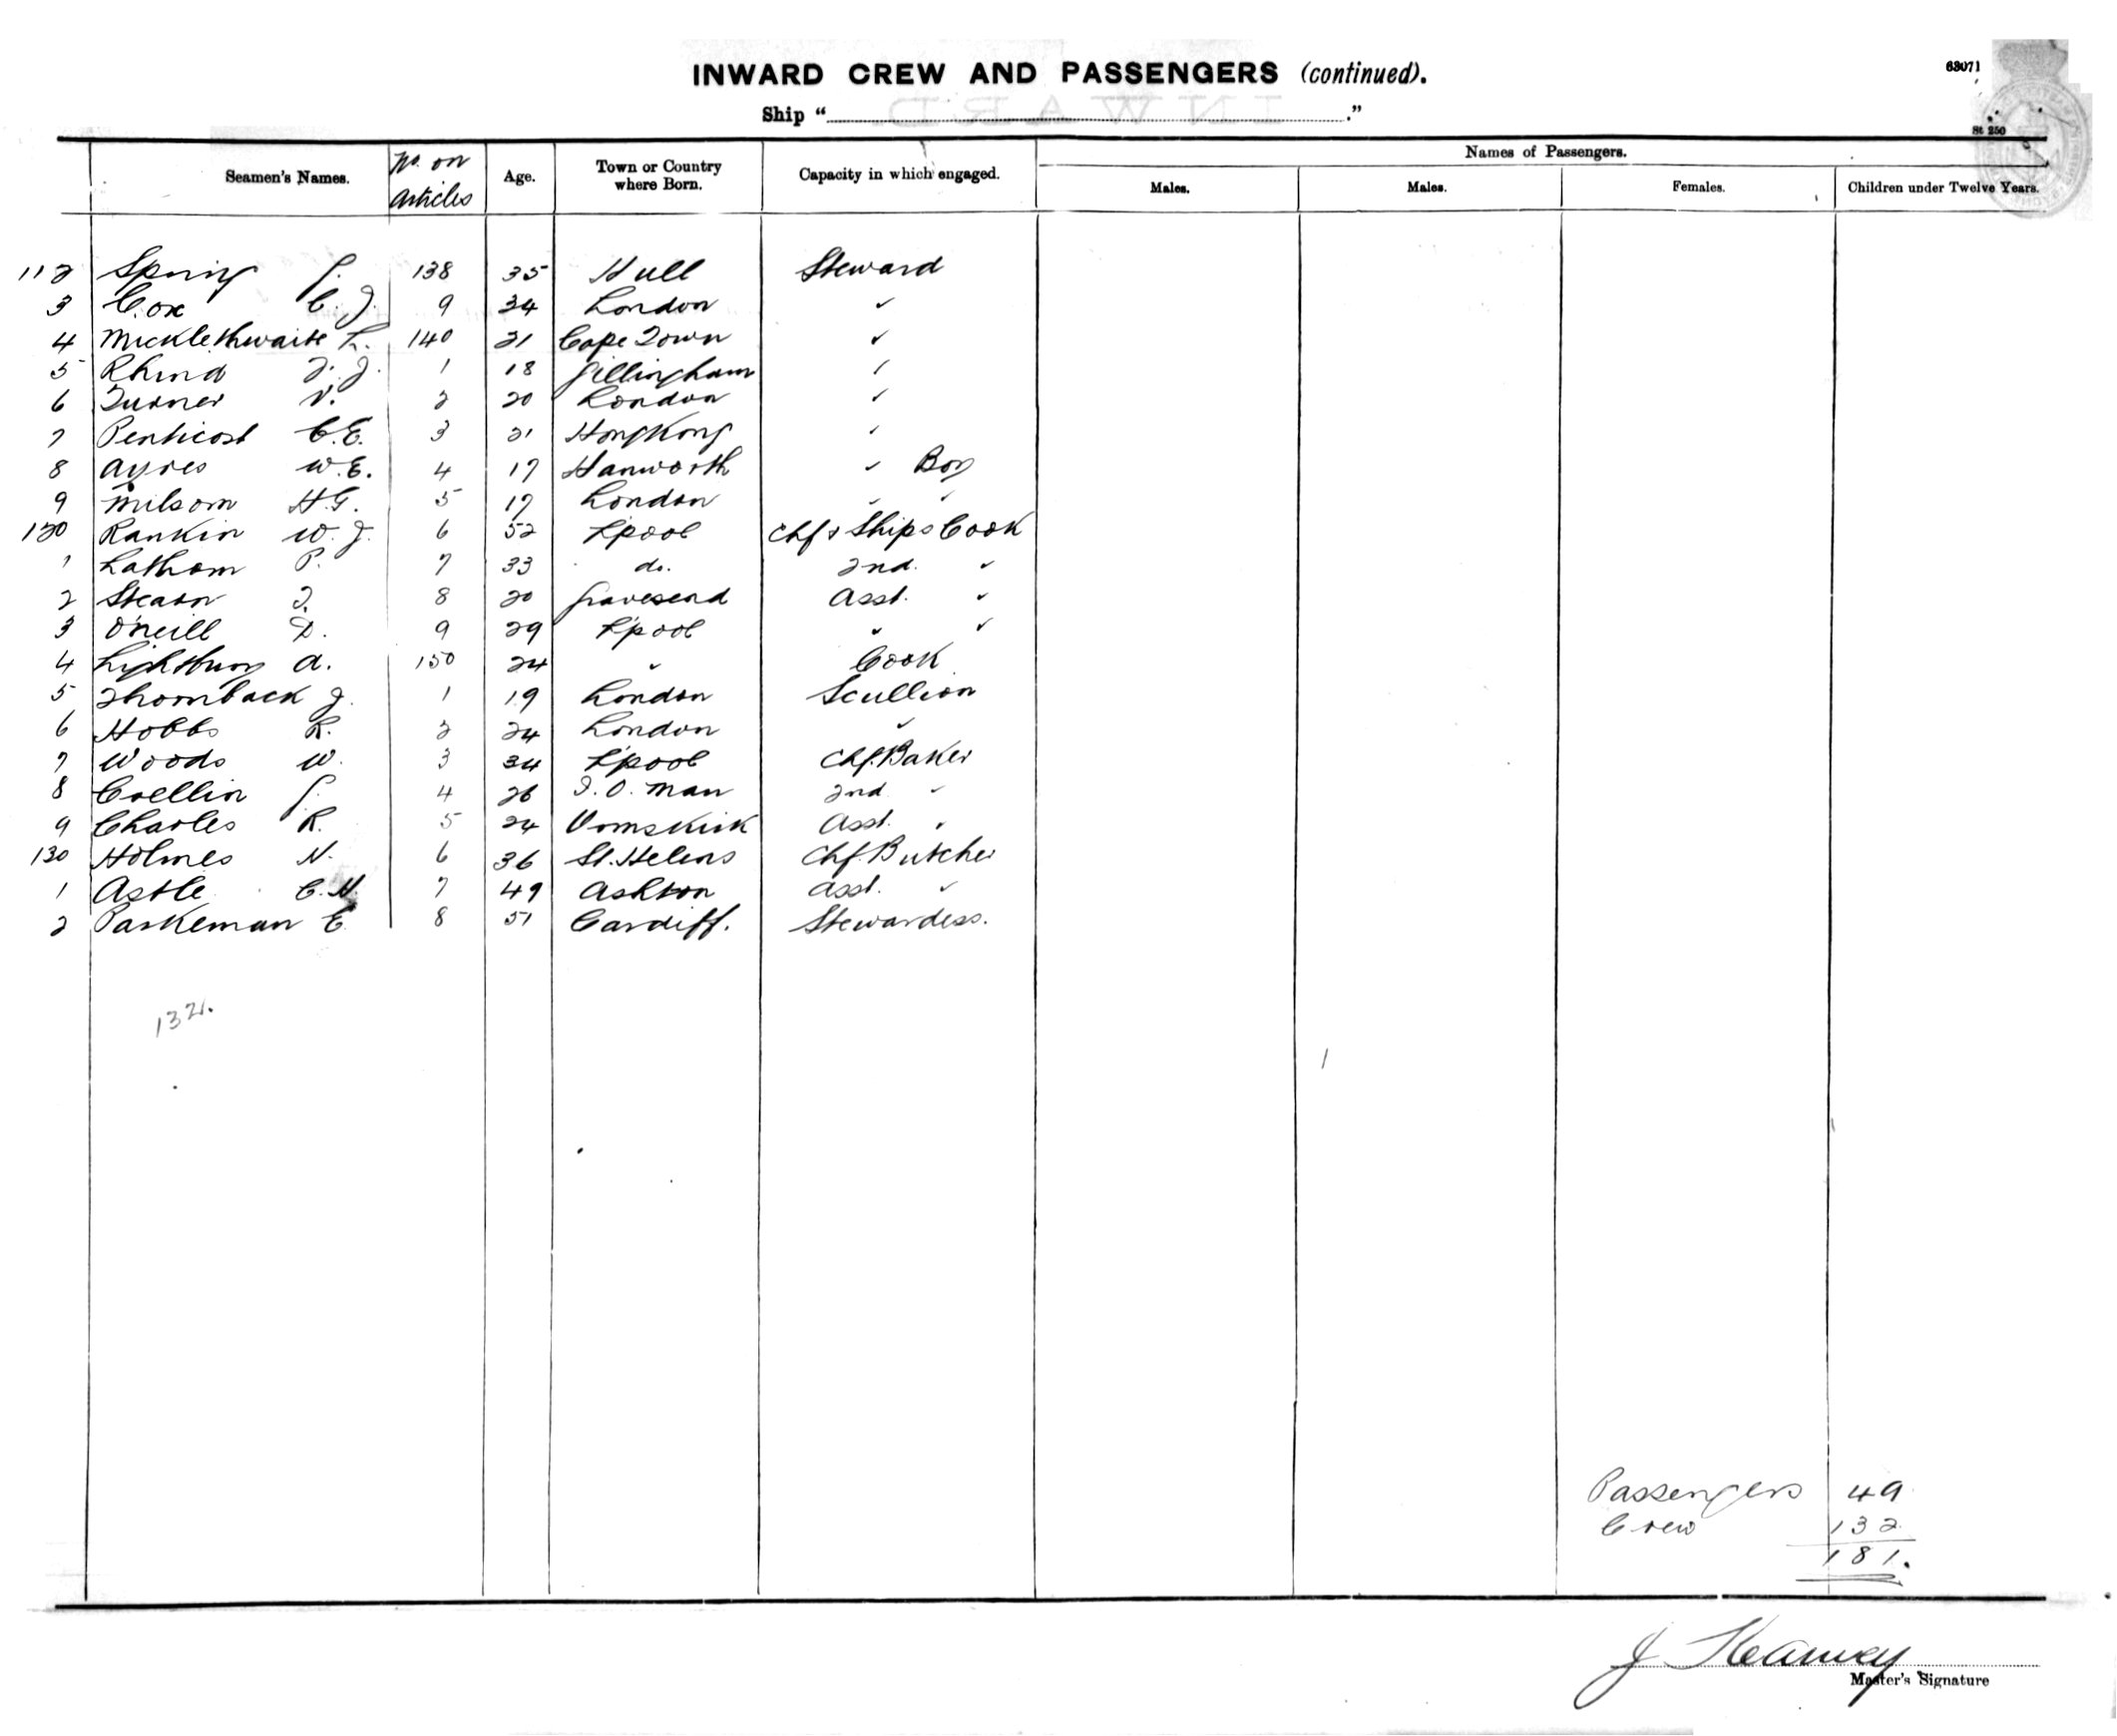 INWARD CREW AND PASSENGERS (continued).
63071
Ship " "
St 250
Seamen's Names. No. on Articles Age. Town or Country where Born. Capacity in which engaged. Names of Passengers.
Males. Males. Females. Children under Twelve Years.
112 Spring 138 35 Hull Steward
3 Cox C. J. 9 34 London "
4 Micklethwaite L. 140 21 Cape Town "
5 Rhind J. J. 1 18 Gillingham "
6 Turner V. 2 20 London "
7 Penticost C. E. 3 21 HongKong "
8 Ayres W. E. 4 17 Hanworth " Boy
9 Milsom H. G. 5 17 London " "
120 Rankin W. J. 6 52 L'pool Chf & Ships Cook
1 Latham P. 7 33 do. 2nd. "
2 Stearn T. 8 20 Gravesend Asst. "
3 O'Neill D. 9 29 L'pool " "
4 Lightburn A. 150 24 " Cook
5 Thornback J. 1 19 London Scullion
6 Hobbs R. 2 24 London "
7 Woods W. 3 34 L'pool Chf. Baker
8 Crellin 4 26 I. O. Man 2nd "
9 Charles R. 5 24 Ormskirk Asst. "
130 Holmes N. 6 36 St. Helens Chf. Butcher
1 Astle C. H. 7 49 Ashton Asst. "
2 Parkeman E. 8 51 Cardiff. Stewardess.
132.
Passengers 49
Crew 132
181.
J Kearney
Master's Signature